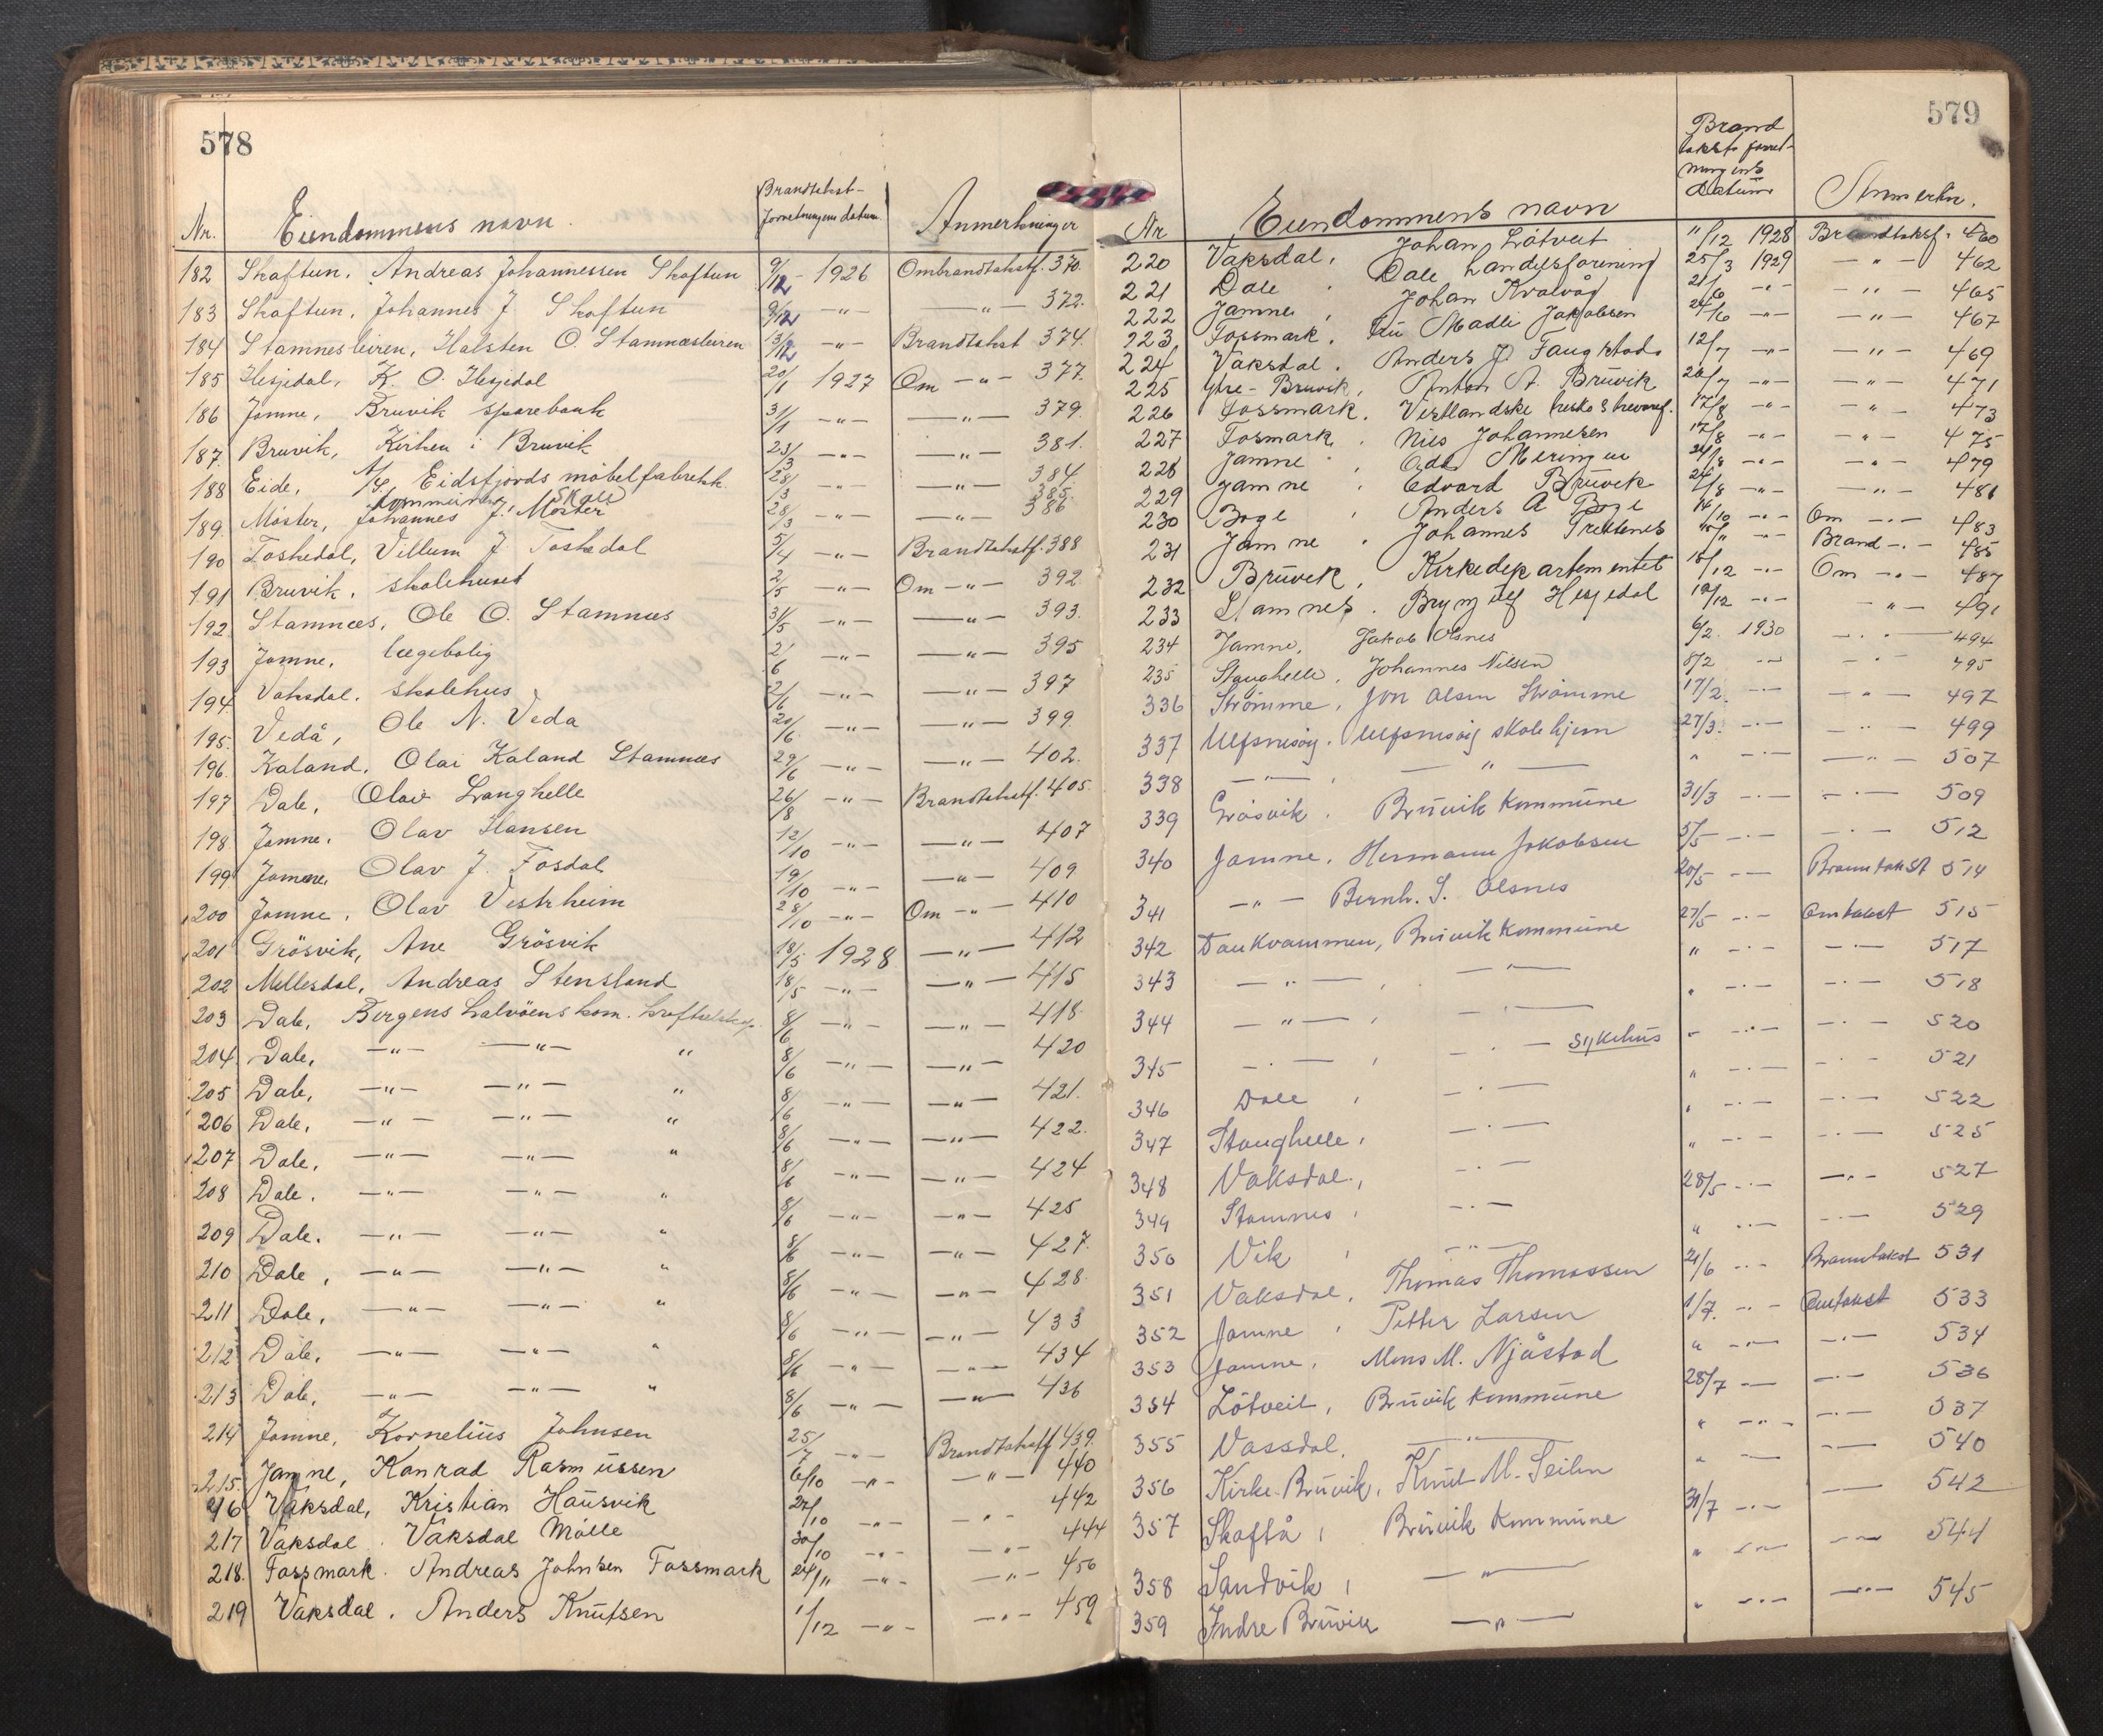 578
Nr. Eiendommens navn. Brandtakst-forretningens datum Anmerkninger
182 Skaftun, Andreas Johannessen Skaftun 9/12 - 1926 Ombrandtakstf. 370.
183 Skaftun, Johannes J. Skaftun 9/12 -"- -"- 372.
184 Stamnesleiren, Halsten O. Stamnæsleiren 13/12 -"- Brandtakst 374.
185 Hesjedal, K. O. Hesjedal 20/1 1927 Om -"- 377.
186 Jamne, Bruvik sparebank 31/1 -"- -"- 379.
187. Bruvik, Kirken i Bruvik 23/3 -"- -"- 381.
188 Eide, A/S Eidsfjords möbelfabrekk. 28/3 -"- -"- 384.
385.
189. Möster, Johannes J. Möster 28/3 -"- -"- 386
190 Toskedal, Villum J. Toskedal 5/4 -"- Brandtakstf. 388
191 Bruvik, skolehuset 2/5 -"- Om -"- 392.
192. Stamnæs, Ole O. Stamnæs 31/5 -"- -"- 393.
193 Jamne, lægebolig 2/6 -"- -"- 395
194. Vaksdal, skolehus 2/6 -"- -"- 397
195. Vedå, Ole N. Veda 20/6 -"- -"- 399.
196. Kaland, Olai Kaland Stamnæs 29/6 -"- -"- 402.
197 Dale, Olav Langhelle 26/8 -"- Brandtakstf. 405.
198. Jamne, Olav Hansen 12/10 -"- -"- 407
199 Jamne, Olav J. Fosdal 19/10 -"- -"- 409
200 Jamne, Olav Vestrheim 28/10 -"- Om -"- 410
201 Grösvik, Ane Grösvik 18/5 1928 -"- 412
202 Mellesdal, Andreas Stensland 18/5 -"- -"- 415
203 Dale, Bergens Halvöens kom. kraftselskap. 8/6 -"- -"- 418.
204. Dale, -"- -"- " 8/6 -"- -"- 420
205 Dale, -"- -"- " 8/6 -"- -"- 421.
206 Dale, -"- -"- " 8/6 -"- -"- 422.
207 Dale, -"- -"- " 8/6 -"- -"- 424
208 Dale, -"- -"- " 8/6 -"- -"- 425
209 Dale, -"- -"- " 8/6 -"- -"- 427.
210 Dale, -"- -"- " 8/6 -"- -"- 428.
211 Dale, -"- -"- " 8/6 -"- -"- 433
212 Dale, -"- -"- " 8/6 -"- -"- 434
213 Dale, -"- -"- " 8/6 -"- -"- 436
214 Jamne, Kornelius Johnsen 25/7 -"- Brandtakstf 439.
215. Jamne, Konrad Rasmussen 6/10 -"- -"- 440
216 Vaksdal, Kristian Hausvik 27/10 -"- -"- 442
217 Vaksdal. Vaksdal Mölle 30/10 -"- -"- 444
218. Fossmark. Andreas Johnsen Fossmark 24/11 -"- -"- 450
219 Vaksdal. Anders Knutsen 1/12 -"- -"- 459
579
Nr Eiendommens navn Brandtakstforretningens Datum Anmerkn.
220 Vaksdal, Johan Låtveit 11/12 1928 Brandtakstf. 460
221 Dale, Dale handelsforening 25/3 1929 -"- 462
222 Jamne, Johan Kvalvåg 21/6 -"- -"- 465
223 Fossmark, Fru Madli Jakobsen 24/6 -"- -"- 467
224 Vaksdal. Anders J. Faugstad 12/7 -"- -"- 469
225 Ytre-Bruvik, Anton A. Bruvik 20/7 -"- -"- 471
226 Fossmark. Vestlandske 17/8 -"- -"- 473
227 Fosmark, Nils Johannesen 17/8 -"- -"- 475
228 Jamne, Meringen 24/8 -"- -"- 479
229 Jamne, Edvard Bruvik 24/8 -"- -"- 481
230 Boge, Anders A Boge 14/10 -"- Om -"- 483
231 Jamne, Johannes Trettenes -"- Brand -"- 485
232 Bruvik, Kirkedepartementet 10/12 -"- Om -"- 487
233 Stamnes. Brynjulf Hesjedal 19/12 -"- -"- 491
234 Jamne, Jakob Olsnes 6/2. 1930 -"- 494
235 Stanghelle, Johannes Nilsen 8/2 -"- -"- 495
336 Strömme, Jon Olsen Strömme 17/2. -"- -"- 497
337 Ulfsnesöy. Ulfsnesöy skolehjem 27/3. -"- -"- 499
338 -"- , -"- " -"- -"- 507
339 Gråsvik, Bruvik kommune 31/3 -"- -"- 509
340 Jamne, Hermann Jakobsen 5/5 -"- -"- 512
341 -"- Bernh. S. Olsnes 20/5 -"- Branntakst 514
342 Daukvammen, Bruvik kommune 27/5 -"- Omtakst 515
343 -"- , -"- " -"- -"- 517
344 -"- , -"- " -"- -"- 518
345 -"- , -"- Sykehus " -"- -"- 520
346 Dale , -"- " -"- -"- 521
347 Stanghelle, -"- " -"- -"- 522
348 Vaksdal, -"- " -"- -"- 525
349 Stamnes, -"- 28/5 -"- -"- 527
350 Vik , -"- " -"- -"- 529
351 Vaksdal, Thomas Thomassen 21/6 -"- Branntakst 531
352 Jamne, Petter Larsen 1/7. -"- Omtakst 533
353 Jamne, Mons M. Njåstad " -"- -"- 534
354 Lötveit, Bruvik kommune 28/7 -"- -"- 536
355 Vassdal, -"- " -"- -"- 537
356 Kirke-Bruvik, Knut M. Seilen " -"- -"- 540
357 Skaftå, Bruvik kommune 31/7 -"- -"- 542
358 Sandvik, -"- " -"- -"- 544
359 Indre Bruvik -"- " -"- -"- 545